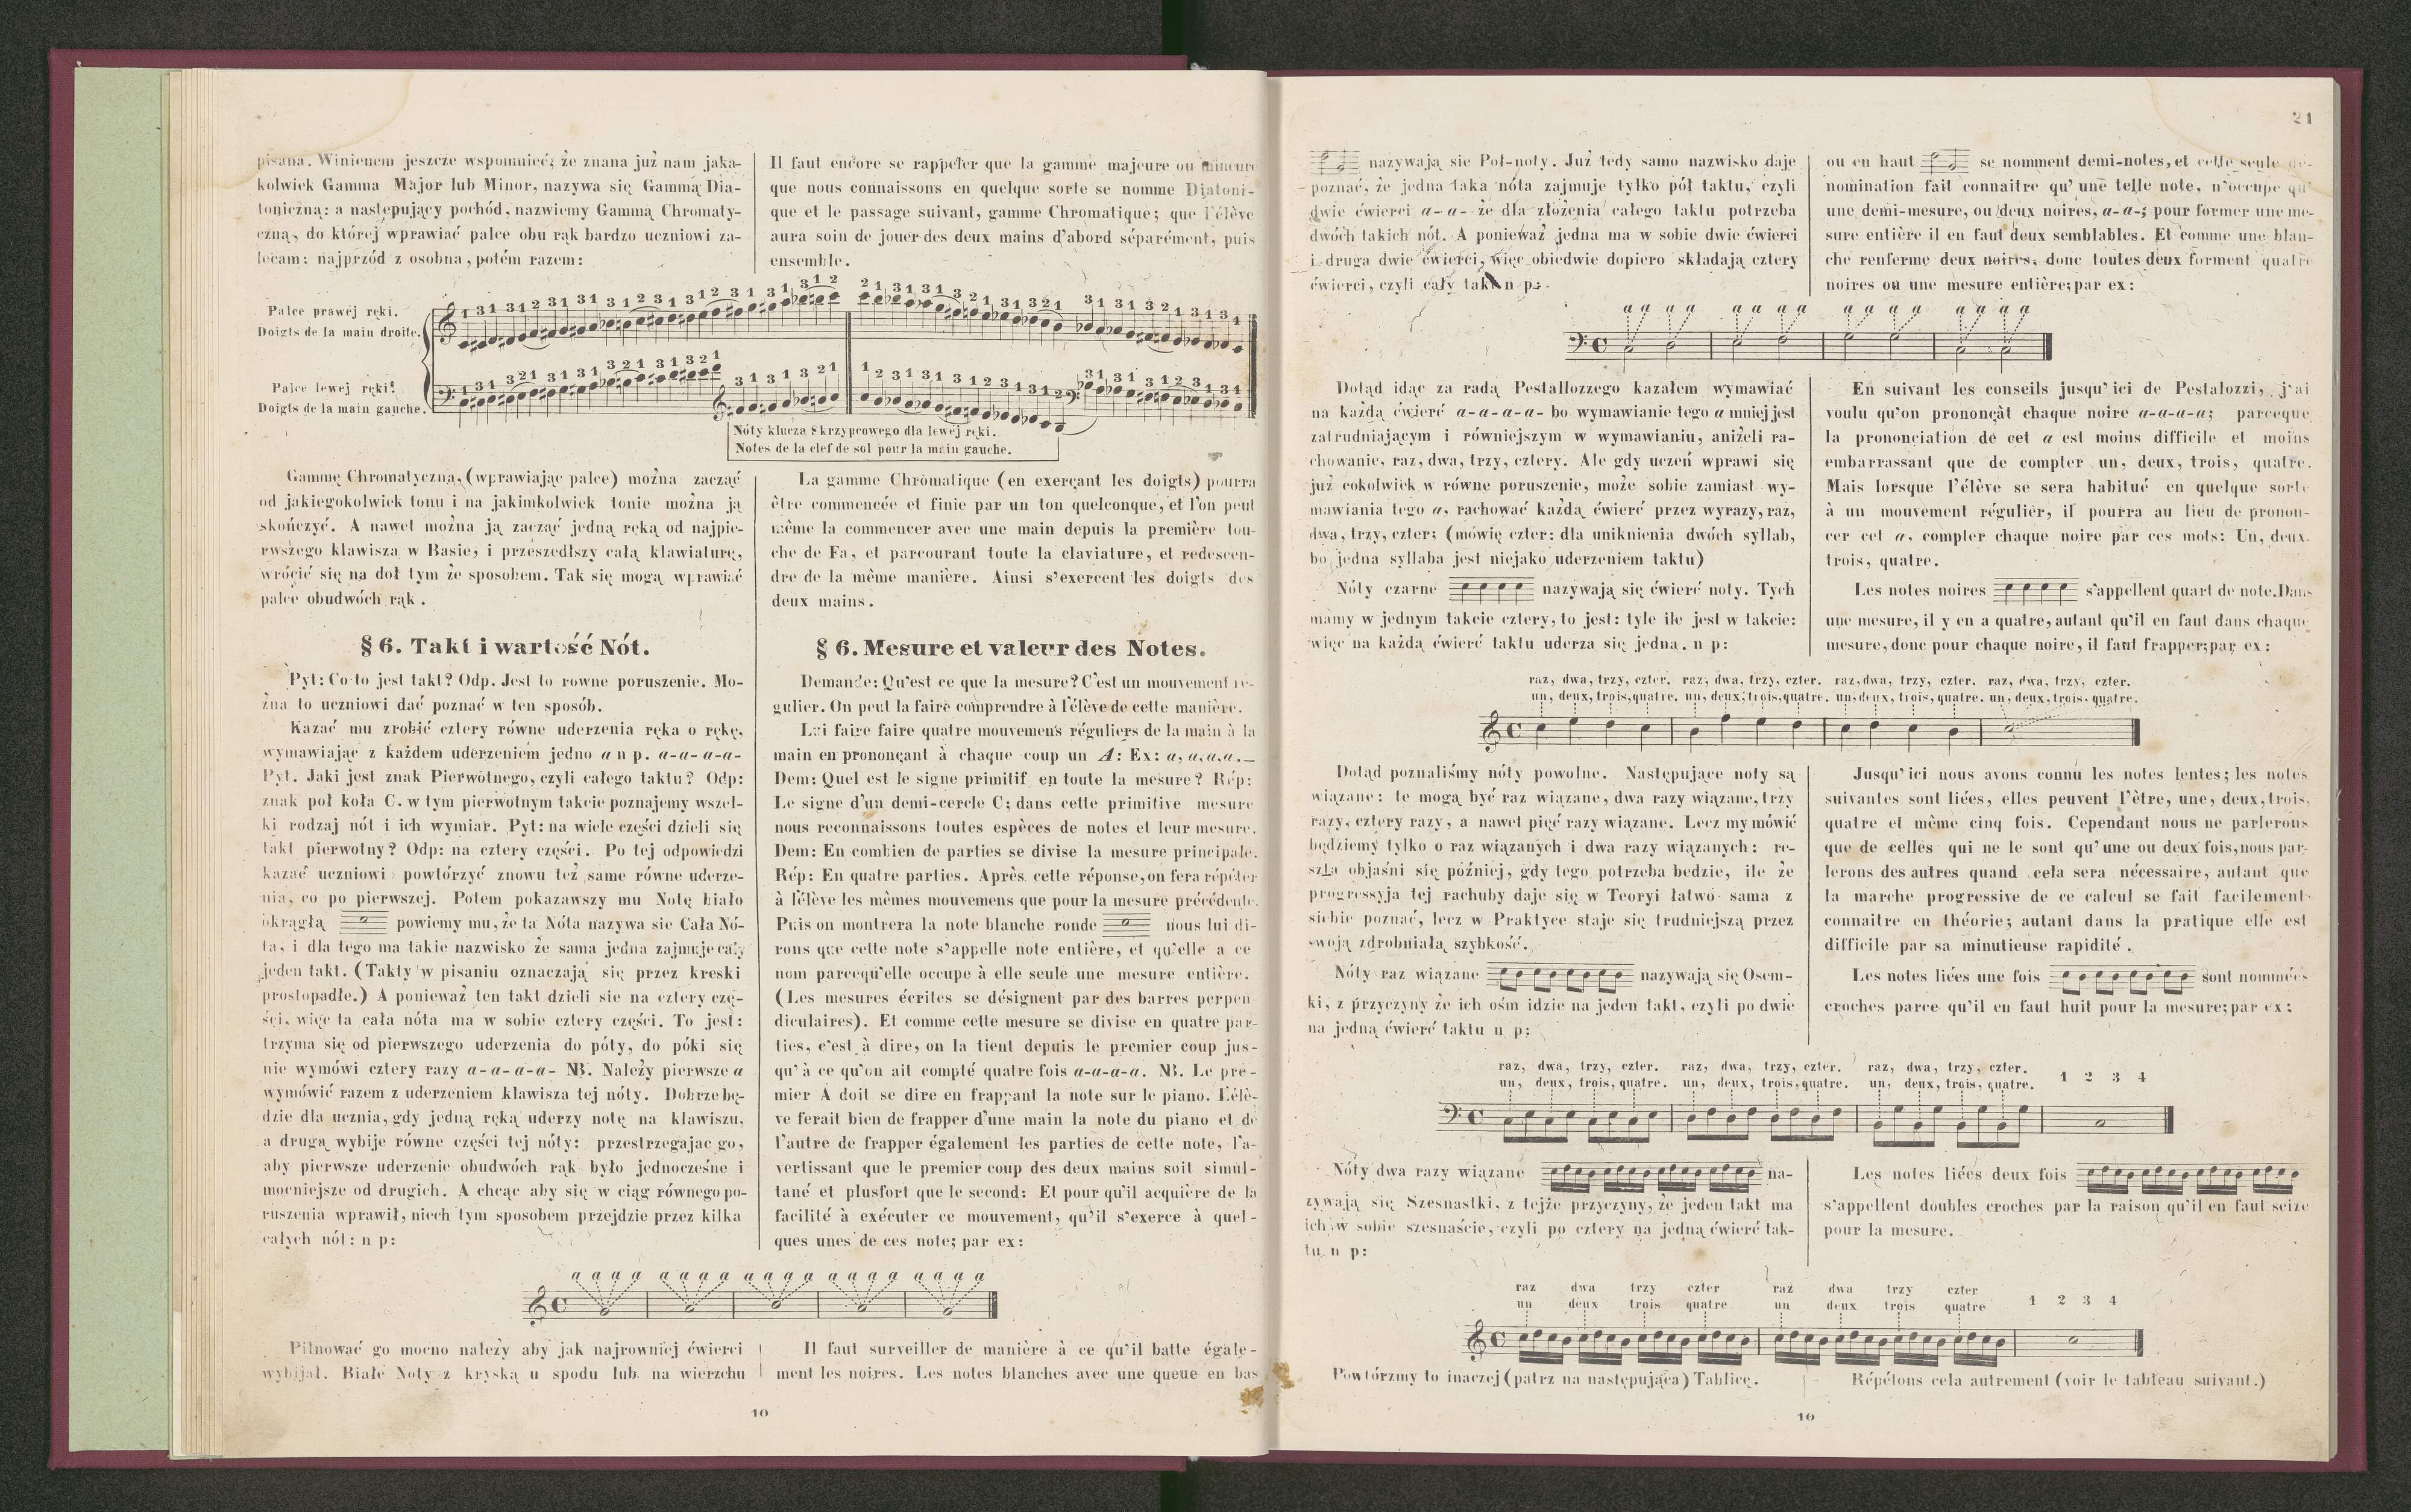 pisana. Winienem jeszcze wspomnieć; że znana już nam jaka-
kolwiek Gamma Major lub Minor, nazywa się Gammą Dia-
toniczną: a następujący pochód, nazwiemy Gammą Chromaty-
czną, do której wprawiać palce obu rąk bardzo uczniowi za-
lecam: najprzód z osobna, potém razem:
Il faut encore se rappeler que la gamme majeure ou mineure
que nous connaissons en quelque sorte se nomme Diatoni-
que et le passage suivant, gamme Chromatique; que l'élève
aura soin de jouer des deux mains d'abord séparément, puis
ensemble.
Palce prawéj ręki.
Doigts de la main droite.
Palce lewej ręki.
Doigts de la main gauche.
Nóty klucza Skrzypcowego dla lewéj ręki.
Notes de la clef de sol pour la main gauche.
Gammę Chromatyczną, (wprawiając palce) można zacząć
od jakiegokolwiek tonu i na jakimkolwiek tonie można ją
skończyć. A nawet można ją zacząć jedną ręką od najpie-
rwszego klawisza w Basie, i przeszedłszy całą klawiaturę,
wrócić się na doł tym że sposobem. Tak się mogą wprawiać
palce obudwóch rąk.
La gamme Chromatique (en exerçant les doigts) pourra
être commencée et finie par un ton quelconque, et l'on peut
même la commencer avec une main depuis la première tou-
che de Fa, et parcourant toute la claviature, et redescen-
dre de la même manière. Ainsi s'exercent les doigts des
deux mains.
§ 6. Takt i wartość Nót.
Pyt: Co to jest takt? Odp. Jest to rowne poruszenie. Mo-
żna to uczniowi dać poznać w ten sposób.
Kazać mu zrobić cztery równe uderzenia ręka o rękę,
wymawiając z każdem uderzeniem jedno a n p. a-a-a-a-
Pyt. Jaki jest znak Pierwotnego, czyli całego taktu? Odp:
znak poł koła C. w tym pierwotnym takcie poznajemy wszel-
ki rodzaj nót i ich wymiar. Pyt: na wiele części dzieli się
takt pierwotny? Odp: na cztery części. Po tej odpowiedzi
kazać uczniowi powtórzyć znowu też same równe uderze-
nia, co po pierwszej. Potem pokazawszy mu Notę biało
okrągłą powiemy mu, że ta Nóta nazywa sie Cała Nó-
ta, i dla tego ma takie nazwisko że sama jedna zajmuje cały
jeden takt. (Takty w pisaniu oznaczają się przez kreski
prostopadłe.) A ponieważ ten takt dzieli sie na cztery czę-
ści, więc ta cała nóta ma w sobie cztery części. To jest:
trzyma się od pierwszego uderzenia do póty, do póki się
nie wymówi cztery razy a-a-a-a- NB. Należy pierwsze a
wymówić razem z uderzeniem klawisza tej nóty. Dobrze bę-
dzie dla ucznia, gdy jedną ręką uderzy notę na klawiszu,
a drugą wybije równe części tej nóty: przestrzegajac go,
aby pierwsze uderzenie obudwóch rąk było jednocześne i
mocniejsze od drugich. A chcąc aby się w ciąg równego po-
ruszenia wprawił, niech tym sposobem przejdzie przez kilka
całych nót: n p:
§ 6. Mesure et valeur des Notes.
Demande: Qu'est ce que la mesure? C'est un mouvement re-
gulier. On peut la faire comprendre à l'élève de cette manière.
Lui faire faire quatre mouvemens réguliers de la main à la
main en prononçant à chaque coup un A: Ex: a, a, a, a.
Dem: Quel est le signe primitif en toute la mesure? Rép:
Le signe d'un demi-cercle C; dans cette primitive mesure
nous reconnaissons toutes espèces de notes et leur mesure.
Dem: En combien de parties se divise la mesure principale.
Rép: En quatre parties. Après cette réponse, on fera répéter
à l'élève les mêmes mouvemens que pour la mesure précédente.
Puis on montrera la note blanche ronde nous lui di-
rons que cette note s'appelle note entière, et qu'elle a ce
nom parcequ'elle occupe à elle seule une mesure entière.
(Les mesures écrites se désignent par des barres perpen
diculaires). Et comme cette mesure se divise en quatre par-
ties, c'est à dire, on la tient depuis le premier coup jus-
qu'à ce qu'on ait compté quatre fois a-a-a-a. NB. Le pré-
mier A doit se dire en frappant la note sur le piano. L'élè-
ve ferait bien de frapper d'une main la note du piano et de
l'autre de frapper également les parties de cette note, l'a-
vertissant que le premier coup des deux mains soit simul-
tané et plusfort que le second: Et pour qu'il acquière de la
facilité à exécuter ce mouvement, qu'il s'exerce à quel-
ques unes de ces note; par ex:
a a a a a a a a a a a a a a a a a a a a
Pilnować go mocno należy aby jak najrowniej ćwierci
wybijał. Białe Noty z kryską u spodu lub na wierzchu
Il faut surveiller de manière à ce qu'il batte égale-
ment les noires. Les notes blanches avec une queue en bas
10
21
nazywają sie Poł-noty. Już tedy samo nazwisko daje
poznać, że jedna taka nóta zajmuje tylko pół taktu, czyli
dwie ćwierci a-a- że dla złożenia całego taktu potrzeba
dwóch takich nót. A ponieważ jedna ma w sobie dwie ćwierci
i druga dwie ćwierci, więc obiedwie dopiero składają cztery
ćwierci, czyli cały takt n p:
ou en haut se nomment demi-notes, et cette seule dé-
nomination fait connaitre qu'une telle note, n'occupe qu'
une demi-mesure, ou deux noires, a-a-; pour former une me-
sure entière il en faut deux semblables. Et comme une blan-
che renferme deux noires, donc toutes deux forment quatre
noires ou une mesure entière; par ex:
a a a a a a a a a a a a a a a a
Dotąd idąc za radą Pestallozzego kazałem wymawiać
na każdą ćwierć a-a-a-a- bo wymawianie tego a mniej jest
zatrudniającym i równiejszym w wymawianiu, aniżeli ra-
chowanie, raz, dwa, trzy, cztery. Ale gdy uczeń wprawi się
już cokolwiek w równe poruszenie, może sobie zamiast wy-
mawiania tego a, rachować każdą ćwierć przez wyrazy, raz,
dwa, trzy, czter; (mówię czter: dla uniknienia dwóch syllab,
bo jedna syllaba jest niejako uderzeniem taktu)
Nóty czarne nazywają się ćwierć noty. Tych
mamy w jednym takcie cztery, to jest: tyle ile jest w takcie:
więc na każdą ćwierć taktu uderza się jedna. n p:
En suivant les conseils jusqu'ici de Pestalozzi, j'ai
voulu qu'on prononçât chaque noire a-a-a-a; parceque
la prononciation de cet a est moins difficile et moins
embarrassant que de compter un, deux, trois, quatre.
Mais lorsque l'élève se sera habitué en quelque sorte
à un mouvement régulier, il pourra au lieu de pronon-
cer cet a, compter chaque noire par ces mots: Un, deux.
trois, quatre.
Les notes noires s'appellent quart de note. Dans
une mesure, il y en a quatre, autant qu'il en faut dans chaque
mesure, donc pour chaque noire, il faut frapper; par ex:
raz, dwa, trzy, czter. raz, dwa, trzy, czter. raz, dwa, trzy, czter. raz, dwa, trzy, czter.
un, deux, trois, quatre. un, deux, trois, quatre. un, deux, trois, quatre. un, deux, trois, quatre.
Dotąd poznaliśmy nóty powolne. Następujące noty są
wiązane: te mogą być raz wiązane, dwa razy wiązane, trzy
razy, cztery razy, a nawet pięć razy wiązane. Lecz my mówić
będziemy tylko o raz wiązanych i dwa razy wiązanych: re-
szta objaśni się później, gdy tego potrzeba bedzie, ile że
progressyja tej rachuby daje się w Teoryi łatwo sama z
siebie poznać, lecz w Praktyce staje się trudniejszą przez
swoją zdrobniałą szybkość.
Nóty raz wiązane nazywają się Osem-
ki, z przyczyny że ich ośm idzie na jeden takt, czyli po dwie
na jedną ćwierć taktu n p:
Jusqu'ici nous avons connu les notes lentes; les notes
suivantes sont liées, elles peuvent l'être, une, deux, trois,
quatre et même cinq fois. Cependant nous ne parlerons
que de celles qui ne le sont qu'une ou deux fois, nous par-
lerons des autres quand cela sera nécessaire, autant que
la marche progressive de ce calcul se fait facilement
connaitre en théorie; autant dans la pratique elle est
difficile par sa minutieuse rapidité.
Les notes liées une fois sont nommées
croches parce qu'il en faut huit pour la mesure; par ex:
raz, dwa, trzy, czter. raz, dwa, trzy, czter. raz, dwa, trzy, czter.
un, deux, trois, quatre. un, deux, trois, quatre. un, deux, trois, quatre. 1 2 3 4
Nóty dwa razy wiązane na-
zywają się Szesnastki, z tejże przyczyny, że jeden takt ma
ich w sobie szesnaście, czyli po cztery na jedną ćwierć tak-
tu n p:
Les notes liées deux fois
s'appellent doubles croches par la raison qu'il en faut seize
pour la mesure.
raz dwa trzy czter raz dwa trzy czter
un deux trois quatre un deux trois quatre 1 2 3 4
Powtórzmy to inaczej (patrz na następująca) Tablicę.
Répétons cela autrement (voir le tableau suivant.)
10